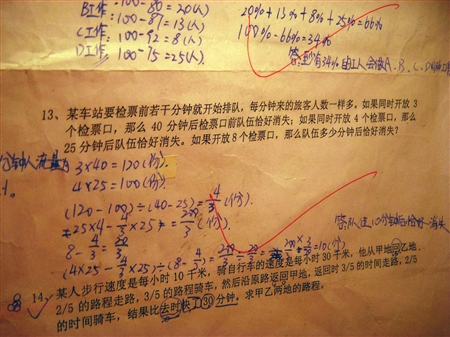 B工作:100-80=20(人)
:100-87=13(人)
C工作:100-92=8(人)
D工作:100-75=25(人)
20%+13%+8%+25%=66%
100%-66%=34%
答:至少有34%的工人会做A、B、C、D四种工
13、某车站要检票前若干分钟就开始排队，每分钟来的旅客人数一样多，如果同时开放 3
个检票口，那么 40 分钟后检票口前队伍恰好消失；如果同时开放 4 个检票口，那么
25 分钟后队伍恰好消失。如果开放 8 个检票口，那么队伍多少分钟后恰好消失？
3×40=120(份)
4×25=100(份)
(120-100)÷(40-25)=4/3(份)
25×4-4/3×25=200/3(份)
8-4/3=20/3
(4×25-4/3×25)÷(8-4/3)=200/3÷20/3=200/3×3/20=10(个)
答:队伍10分钟后恰好消失
14、某人步行速度是每小时 10 千米，骑自行车的速度是每小时 30 千米，他从甲地到乙地．
2/5 的路程走路，3/5 的路程骑车，然后沿原路返回甲地，返回时 3/5 的时间走路，2/5
的时间骑车，结果比去时快了30分钟。求甲乙两地的路程。